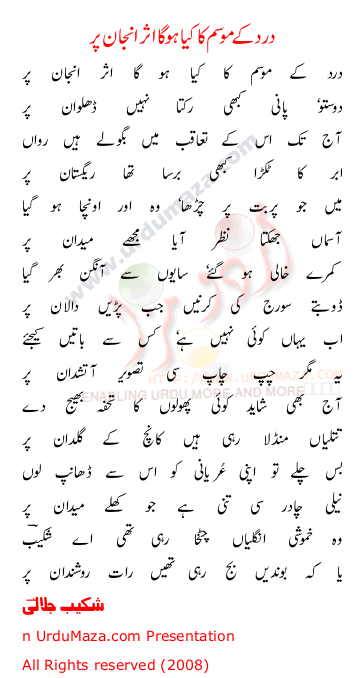 درد کے موسم کا کیا ہوگا اثر انجان پر
درد کے موسم کا کیا ہو گا اثر انجان پر
دوستو، پانی کبھی رکتا نہیں ڈھلوان پر
آج تک اس کے تعاقب میں بگولے ہیں رواں
ابر کا ٹکڑا کبھی برسا تھا ریگستان پر
میں جو پربت پر چڑھا، وہ اور اونچا ہو گیا
آسماں جھکتا نظر آیا مجھے میدان پر
کمرے خالی ہو گئے، سایوں سے آنگن بھر گیا
ڈوبتے سورج کی کرنیں جب پڑیں دالان پر
اب یہاں کوئی نہیں ہے، کس سے باتیں کیجئے
یہ مگر چپ چاپ سی تصویر آتشدان پر
آج بھی شاید کوئی پھولوں کا تحفہ بھیج دے
تتلیاں منڈلا رہی ہیں کانچ کے گلدان پر
بس چلے تو اپنی عُریانی کو اس سے ڈھانپ لوں
نیلی چادر سی تنی ہے جو کھلے میدان پر
وہ خموشی انگلیاں چٹخا رہی تھی اے شکیبؔ
یا کہ بوندیں بج رہی تھیں رات روشندان پر
شکیب جلالیؔ
n UrduMaza.com Presentation
All Rights reserved (2008)
www.urdumaza.com
اردو مزہ
HTTP://WWW.URDUMAZA.COM
ENABLING URDU MORE AND MORE